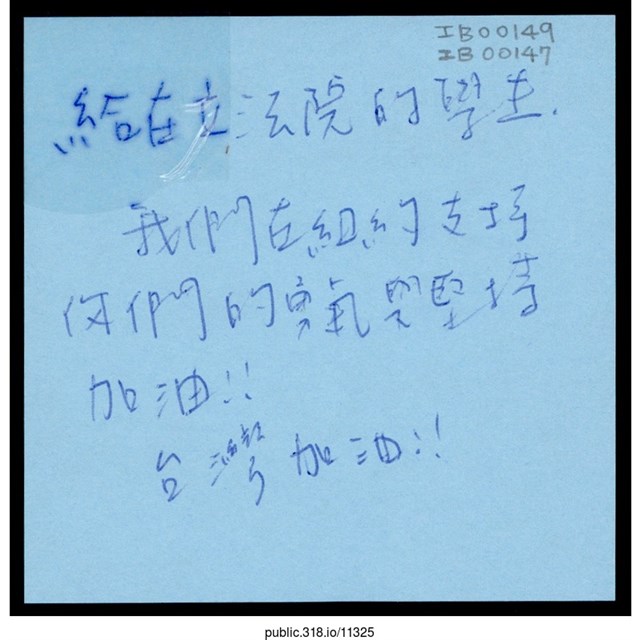 IB00149
IB00147
給在立法院的學生.
我們在紐約支持
你們的勇氣與堅持
加油!!
台灣加油!!
public.318.io/11325